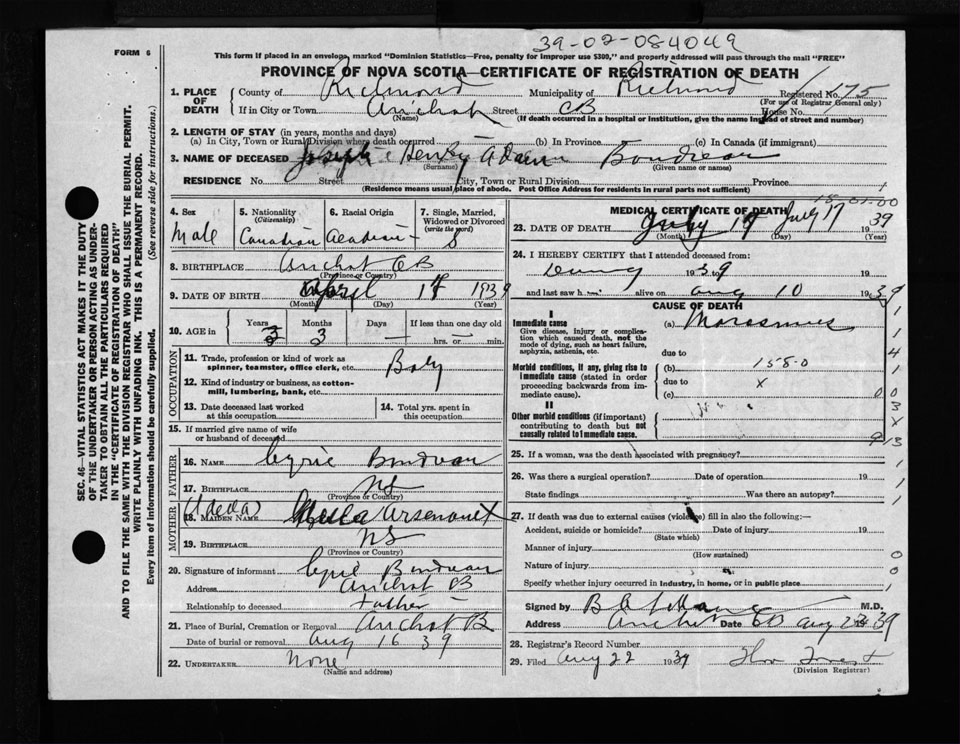 39-02-084049
FORM 6
This form if placed in an envelope, marked "Dominion Statistics—Free, penalty for improper use $300," and properly addressed will pass through the mail "FREE"
PROVINCE OF NOVA SCOTIA—CERTIFICATE OF REGISTRATION OF DEATH
1. PLACE OF DEATH County of Richmond Municipality of Richmond Registered No. 175
(For use of Registrar General only)
If in City or Town Arichat Street CB House No.
(Name) (If death occurred in a hospital or institution, give the name instead of street and number)
2. LENGTH OF STAY (in years, months and days)
(a) In City, Town or Rural Division where death occurred (b) In Province (c) In Canada (if immigrant)
3. NAME OF DECEASED Joseph Henry Boudreau
(Surname) (Given name or names)
RESIDENCE No. Street City, Town or Rural Division Province
(Residence means usual place of abode. Post Office Address for residents in rural parts not sufficient)
4. Sex Male
5. Nationality (Citizenship) Canadian
6. Racial Origin Acadian
7. Single, Married, Widowed or Divorced (write the word) S
8. BIRTHPLACE Arichat CB
(Province or Country)
9. DATE OF BIRTH April 18 1939
(Month) (Day) (Year)
10. AGE in Years Months Days If less than one day old
3 3 — — hrs. or — min.
OCCUPATION
11. Trade, profession or kind of work as spinner, teamster, office clerk, etc. Baby
12. Kind of industry or business, as cotton-mill, lumbering, bank, etc.
13. Date deceased last worked at this occupation
14. Total yrs. spent in this occupation
15. If married give name of wife or husband of deceased
FATHER
16. NAME Cyric Boudreau
17. BIRTHPLACE NS
(Province or Country)
MOTHER
(Adella)
18. MAIDEN NAME Arsenault
19. BIRTHPLACE NS
(Province or Country)
20. Signature of informant Cyril Boudreau
Address Arichat CB
Relationship to deceased Father
21. Place of Burial, Cremation or Removal Arichat CB
Date of burial or removal Aug 16 39
22. UNDERTAKER None
(Name and address)
MEDICAL CERTIFICATE OF DEATH
23. DATE OF DEATH July 19 July 17 1939
(Month) (Day) (Year)
24. I HEREBY CERTIFY that I attended deceased from:
1939 to 19
and last saw h alive on Aug 10 1939
CAUSE OF DEATH
I
Immediate cause (a) Marasmus
Give disease, injury or complication which caused death, not the mode of dying, such as heart failure, asphyxia, asthenia, etc.
due to
Morbid conditions, if any, giving rise to immediate cause (stated in order proceeding backwards from immediate cause).
(b) 158-0
due to x
(c)
II
Other morbid conditions (if important) contributing to death but not causally related to immediate cause.
25. If a woman, was the death associated with pregnancy?
26. Was there a surgical operation? Date of operation 19
State findings Was there an autopsy?
27. If death was due to external causes (violence) fill in also the following:—
Accident, suicide or homicide? Date of injury 19
(State which)
Manner of injury
(How sustained)
Nature of injury
Specify whether injury occurred in industry, in home, or in public place
Signed by M.D.
Address Arichat CB Date Aug 23 39
28. Registrar's Record Number
29. Filed Aug 22 1939
(Division Registrar)
SEC. 46—VITAL STATISTICS ACT MAKES IT THE DUTY
OF THE UNDERTAKER OR PERSON ACTING AS UNDER-
TAKER TO OBTAIN ALL THE PARTICULARS REQUIRED
IN THE "CERTIFICATE OF REGISTRATION OF DEATH"
AND TO FILE THE SAME WITH THE DIVISION REGISTRAR WHO SHALL ISSUE THE BURIAL PERMIT.
WRITE PLAINLY WITH UNFADING INK. THIS IS A PERMANENT RECORD.
Every item of information should be carefully supplied. (See reverse side for instructions.)